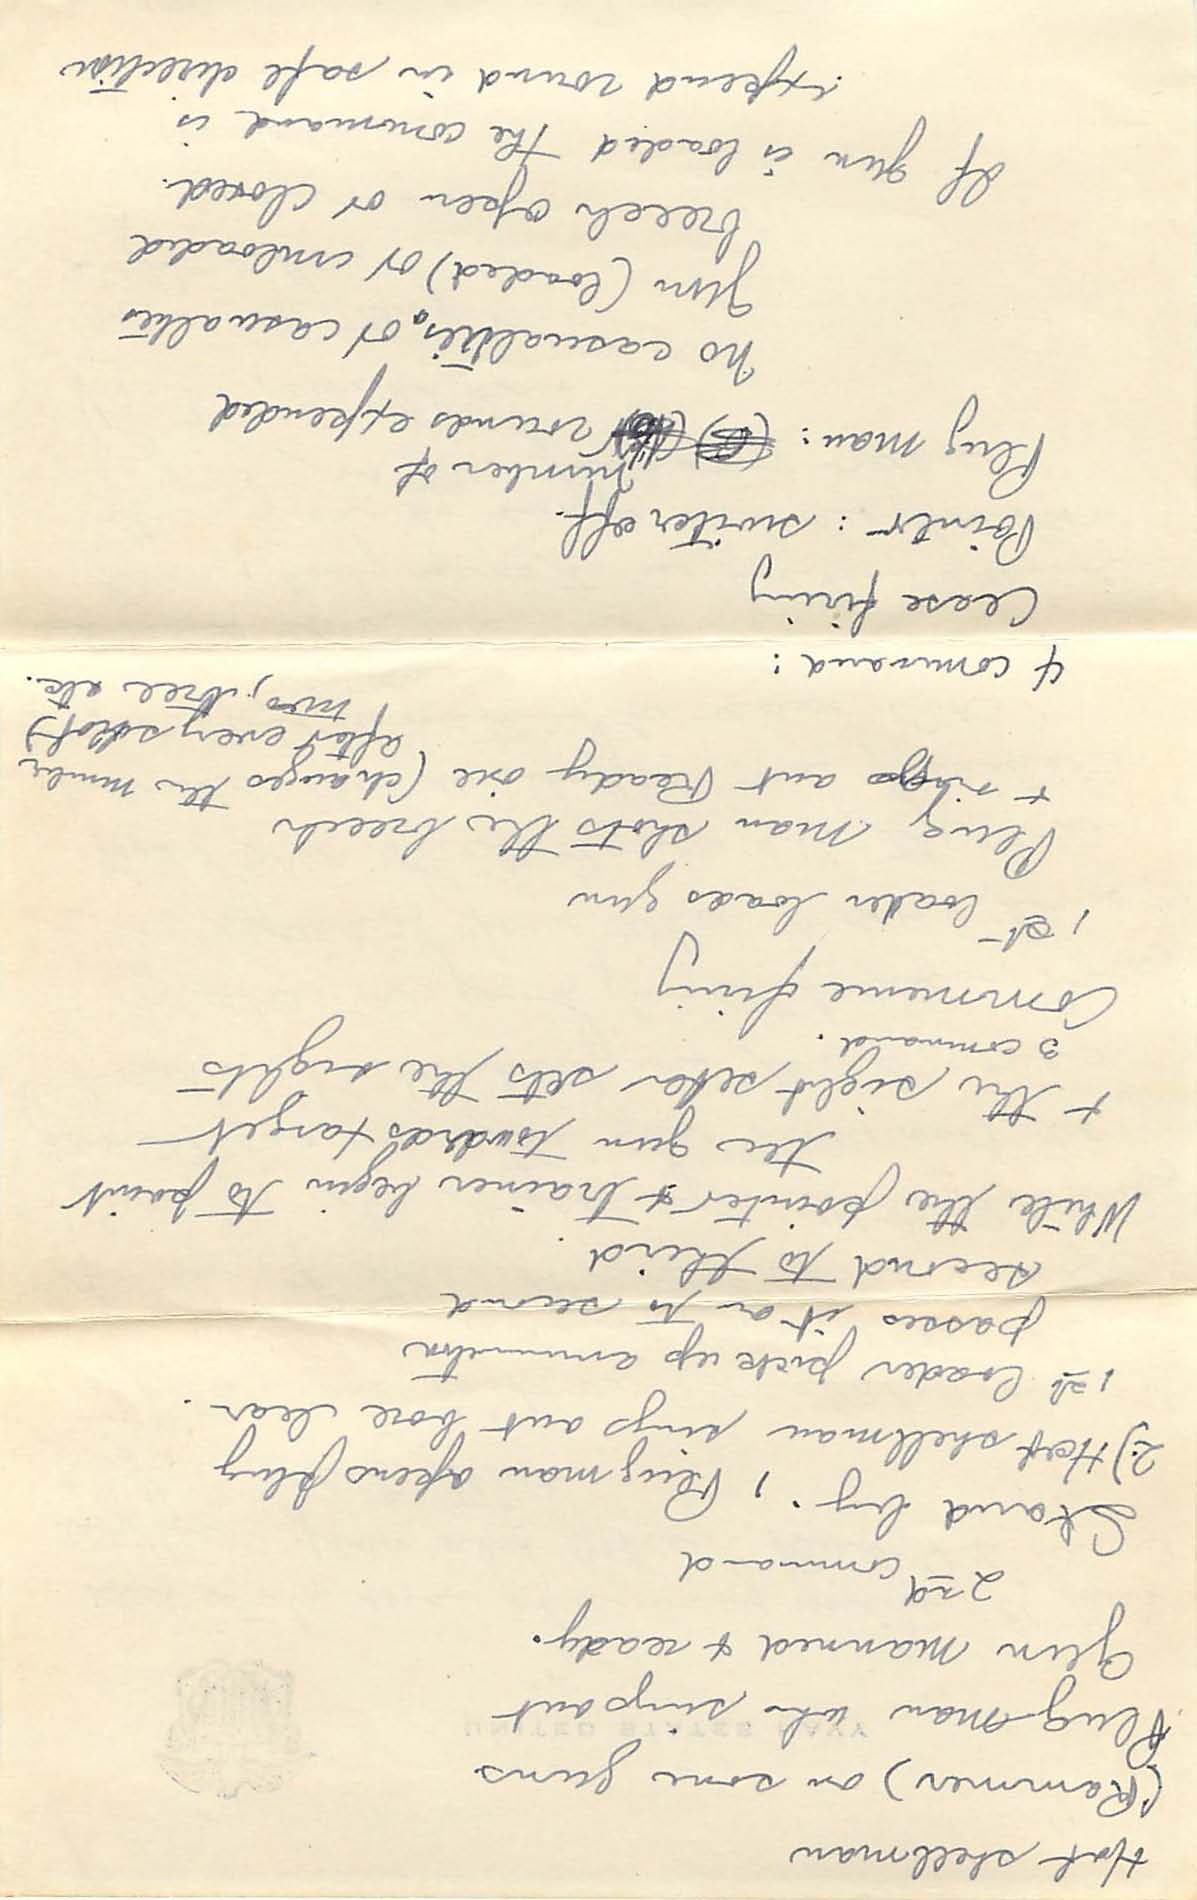 Hot shellman
(Rammer) on some guns
Plug-man who sings out
UNITED STATES NAVY
Gun manned + ready.
2nd command
Stand by: 1, Plugman opens plug
2.) Hot shellman sings out bore clear.
1st loader pick up ammunition
passes it on to second
second to third.
While the pointer + trainer begin to point
the gun towards target
+ the sight setter sets the sights
3 command.
Commence firing
1st loader loads gun
Plug man shots the breech
+ sings out Ready one (changes the number
after every shot)
two, three etc.
4 command:
Cease firing
Pointr: switer off.
number of
Plug man: rounds expended
No casualties, or casualties
Gun (loaded) or unloaded
breech open or closed.
If gun is loaded the command is
expend round in safe direction